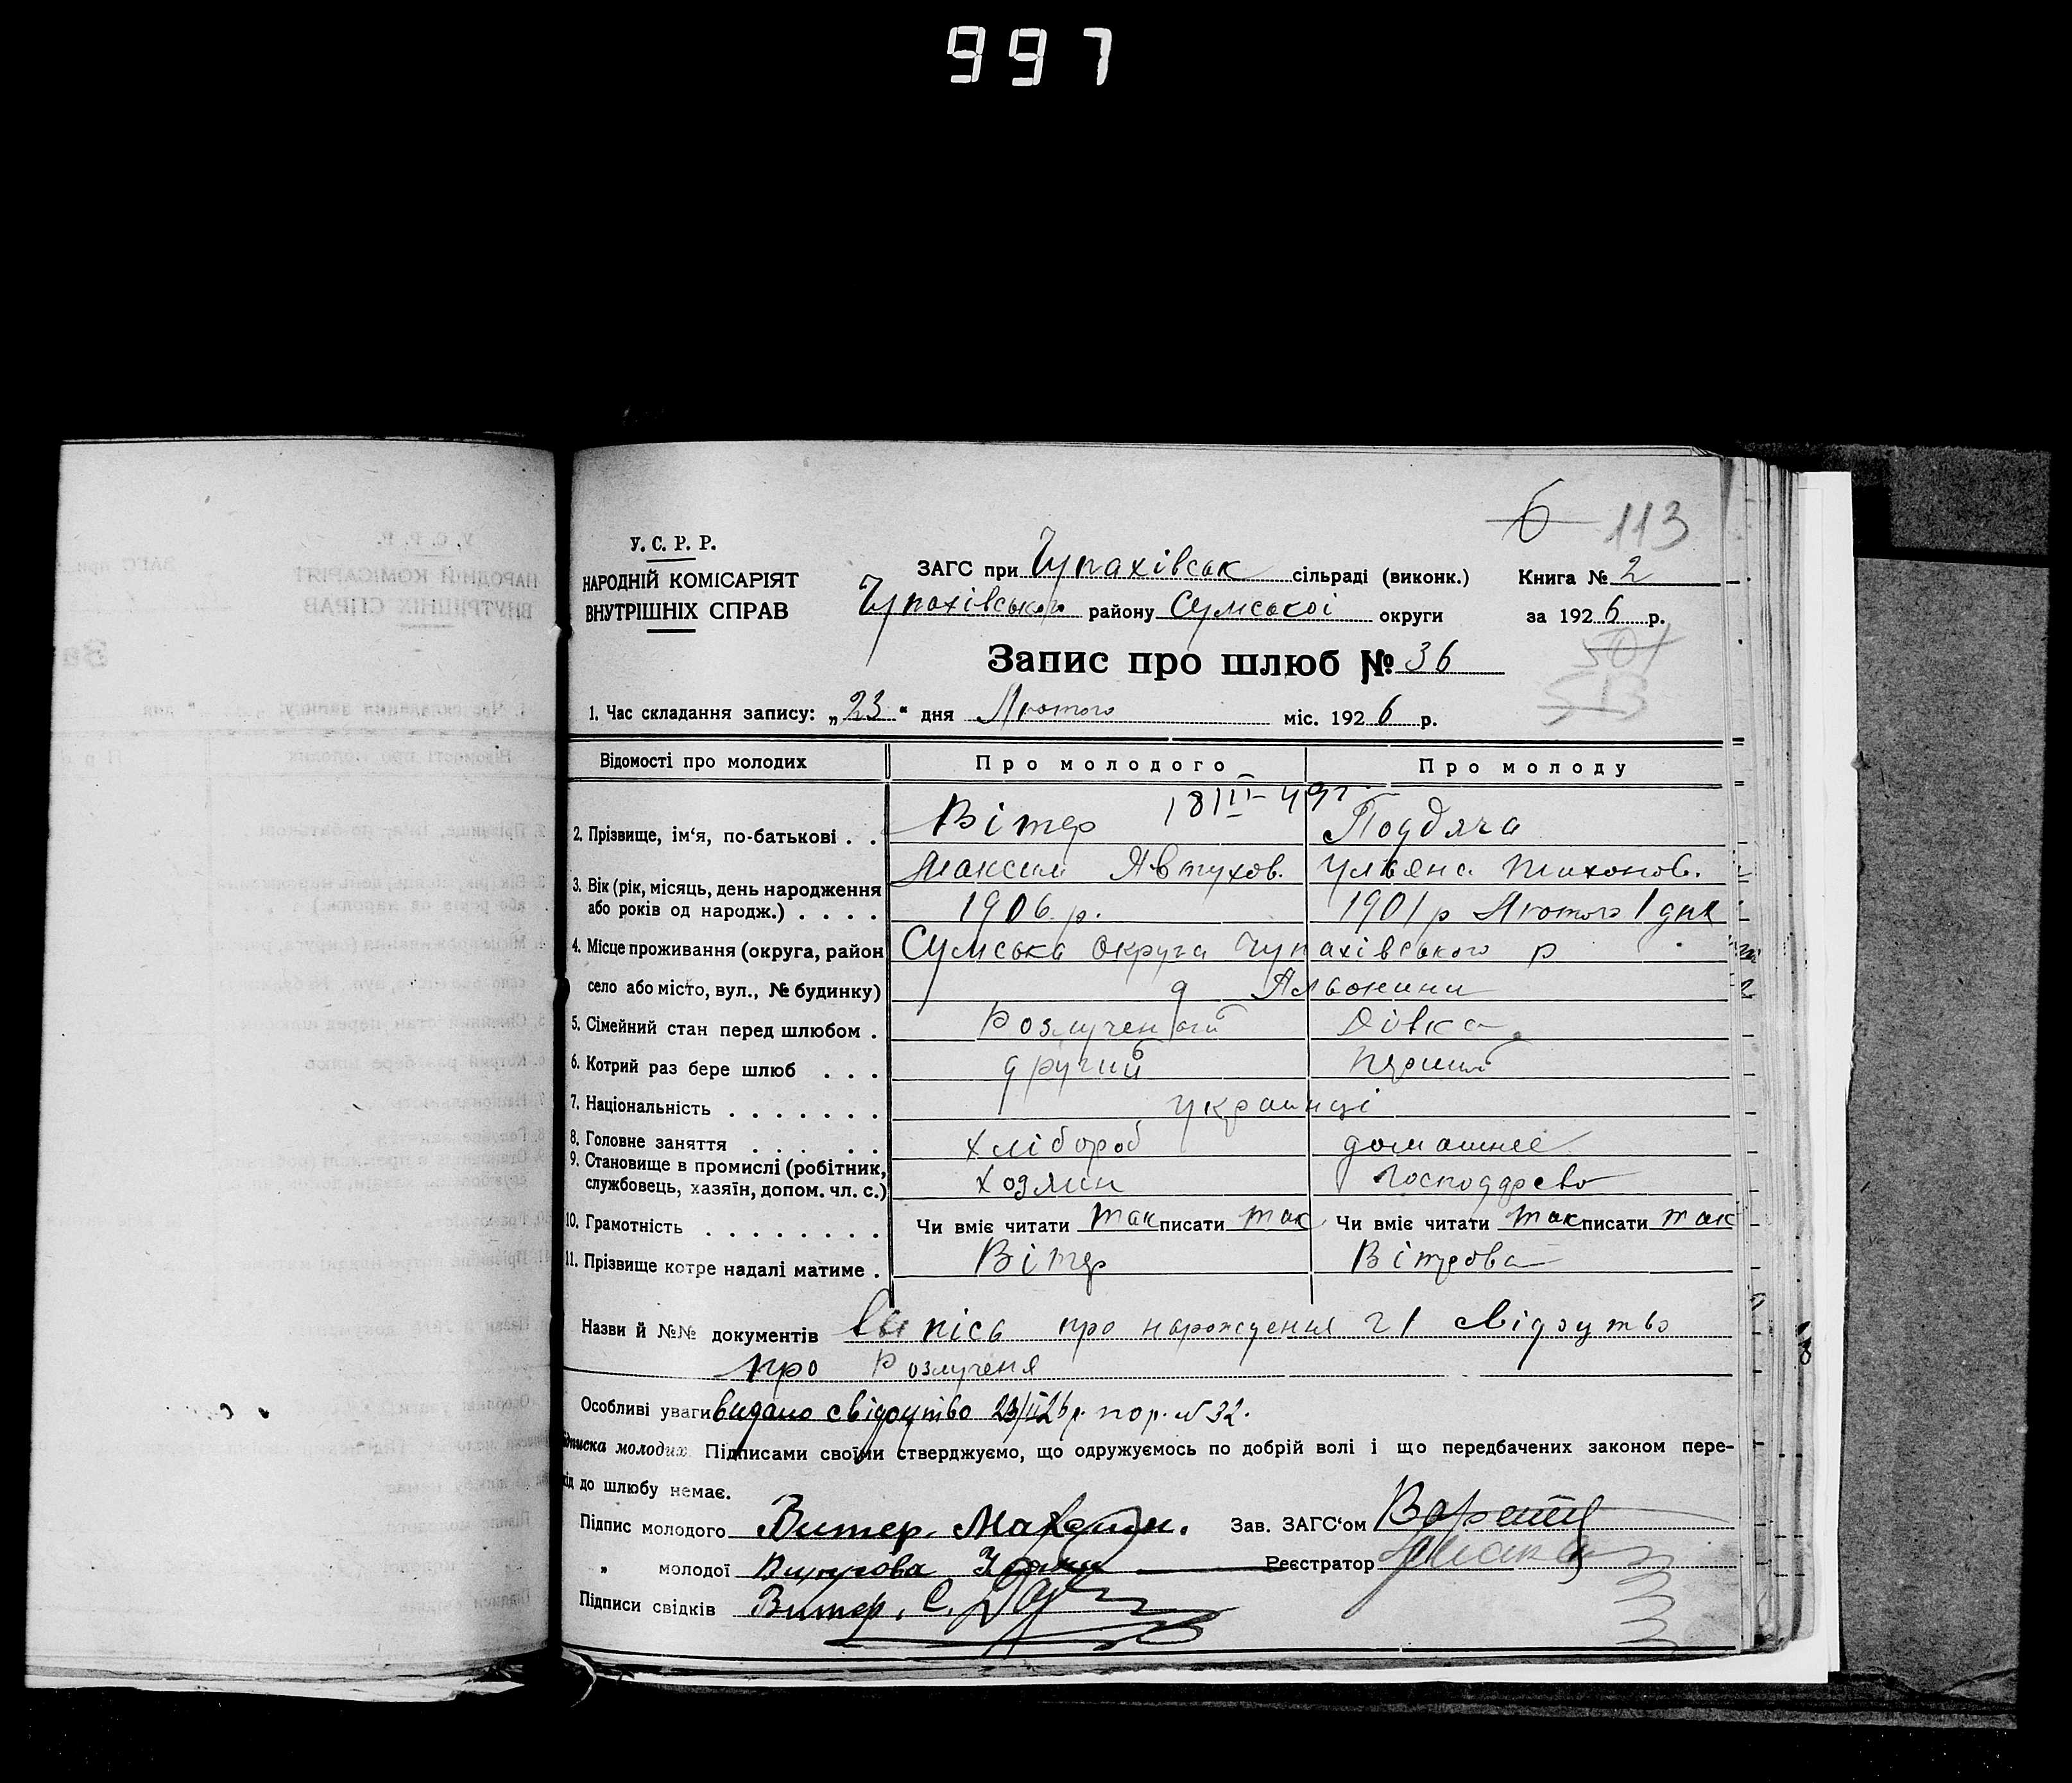 997
6 113
У. С. Р. Р.
НАРОДНІЙ КОМІСАРІЯТ
ВНУТРІШНІХ СПРАВ
ЗАГС при Чупахівськ сільраді (виконк.) Книга № 2
Чупахівського району Сумської округи за 1926 р.
501
513
Запис про шлюб № 36
1. Час складання запису: „23“ дня Лютого міс. 1926 р.
Відомості про молодих Про молодого Про молоду
18/III-49г.
2. Прізвище, ім'я, по-батькові . . Вітер Поддяча
Максим Явтухов. Ульяна Тихонов.
3. Вік (рік, місяць, день народження
або років од народж.) . . . . 1906 р. 1901 р Лютого 1 дня
4. Місце проживання (округа, район Сумська округа Чупахівського р
село або місто, вул., № будинку)
5. Сімейний стан перед шлюбом . Розлученый Дівка
6. Котрий раз бере шлюб . . . другий перший
7. Національність . . . . . . . украинці
8. Головне заняття . . . . . хлібороб домашнее
9. Становище в промислі (робітник,
службовець, хазяїн, допом. чл. с.) хозяин господарство
10. Грамотність . . . . . . . . Чи вміє читати так писати так Чи вміє читати так писати так
11. Прізвище котре надалі матиме . Вітер Вітрова
Назви й №№ документів випісь про нарождення
про Розлученя
Особливі уваги видано свідоцтво 23/II 26 р. пор. № 32.
Підписка молодих. Підписами своїми стверджуємо, що одружуємось по добрій волі і що передбачених законом пере-
від до шлюбу немає.
Підпис молодого Витер. Зав. ЗАГС'ом
„ молодої Реєстратор
Підписи свідків Витер. С.